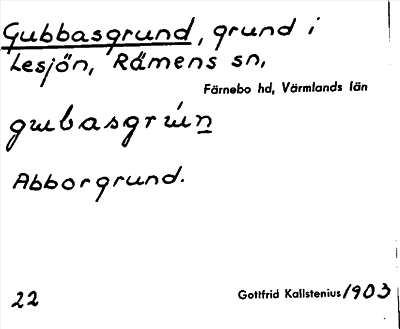 Gubbasgrund, grund i
Lesjön, Rämens sn,
Färnebo hd, Värmlands län
gɯbasgrɯ́n
Abborgrund.
22
Gottfrid Kallstenius 1903